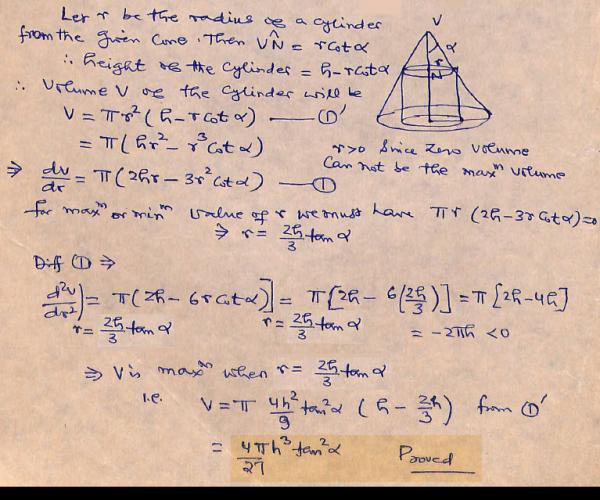 Let r be the radius of a cylinder
from the given Cone. Then VN = r cot α
∴ height of the cylinder = h - r cot α
∴ Volume V of the cylinder will be
V = πr²(h - r cot α) — ①'
= π(hr² - r³ cot α)
r>0 Since Zero Volume
Can not be the maxᵐ Volume
⇒ dv/dr = π(2hr - 3r² cot α) — ①
for maxᵐ or minᵐ Value of r we must have πr(2h - 3r cot α) = 0
⇒ r = 2h/3 tan α
Diff ① ⇒
d²v/dr²) = π(2h - 6r cot α)] = π[2h - 6(2h/3)] = π[2h - 4h]
r = 2h/3 tan α r = 2h/3 tan α = -2πh < 0
⇒ V is maxᵐ when r = 2h/3 tan α
i.e. V = π 4h²/9 tan²α (h - 2h/3) from ①'
= 4πh³/27 tan²α Proved
V
α
r
N